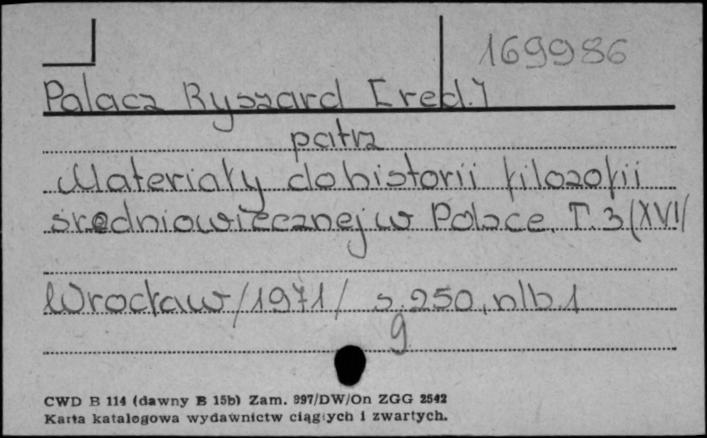 169986
Palacz Ryszard [red.]
patrz
Materiały do historii filozofii
średniowiecznej w Polsce. T. 3(XVI/
Wrocław/1971/ s. 250, nlb 1
9
CWD B 114 (dawny B 15b) Zam. 997/DW/On ZGG 2542
Karta katalogowa wydawnictw ciągłych i zwartych.